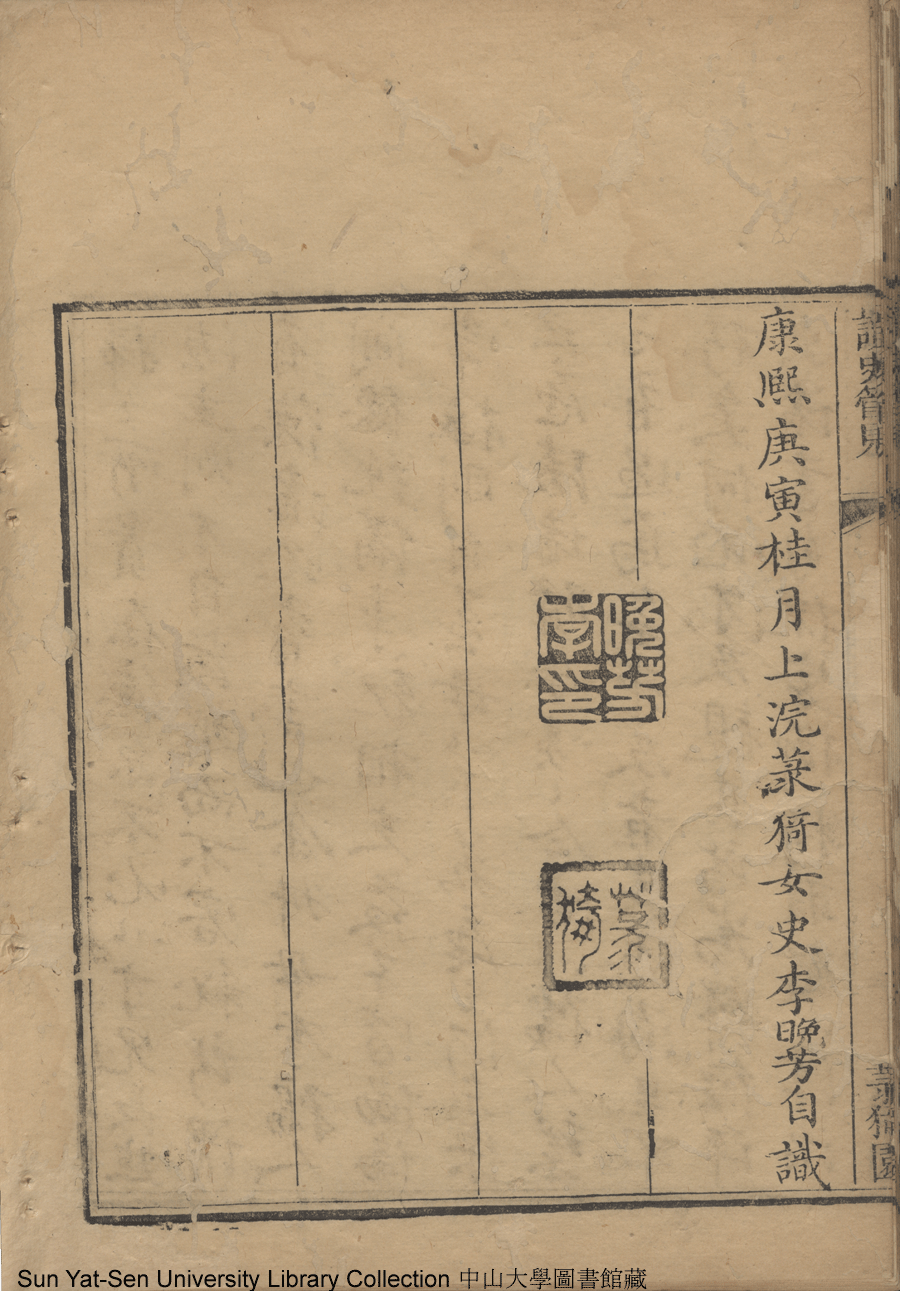 讀史管見
菉猗園
康熙庚寅桂月上浣菉猗女史李晚芳自識
晚芳李印
菉猗
Sun Yat-Sen University Library Collection 中山大學圖書館藏